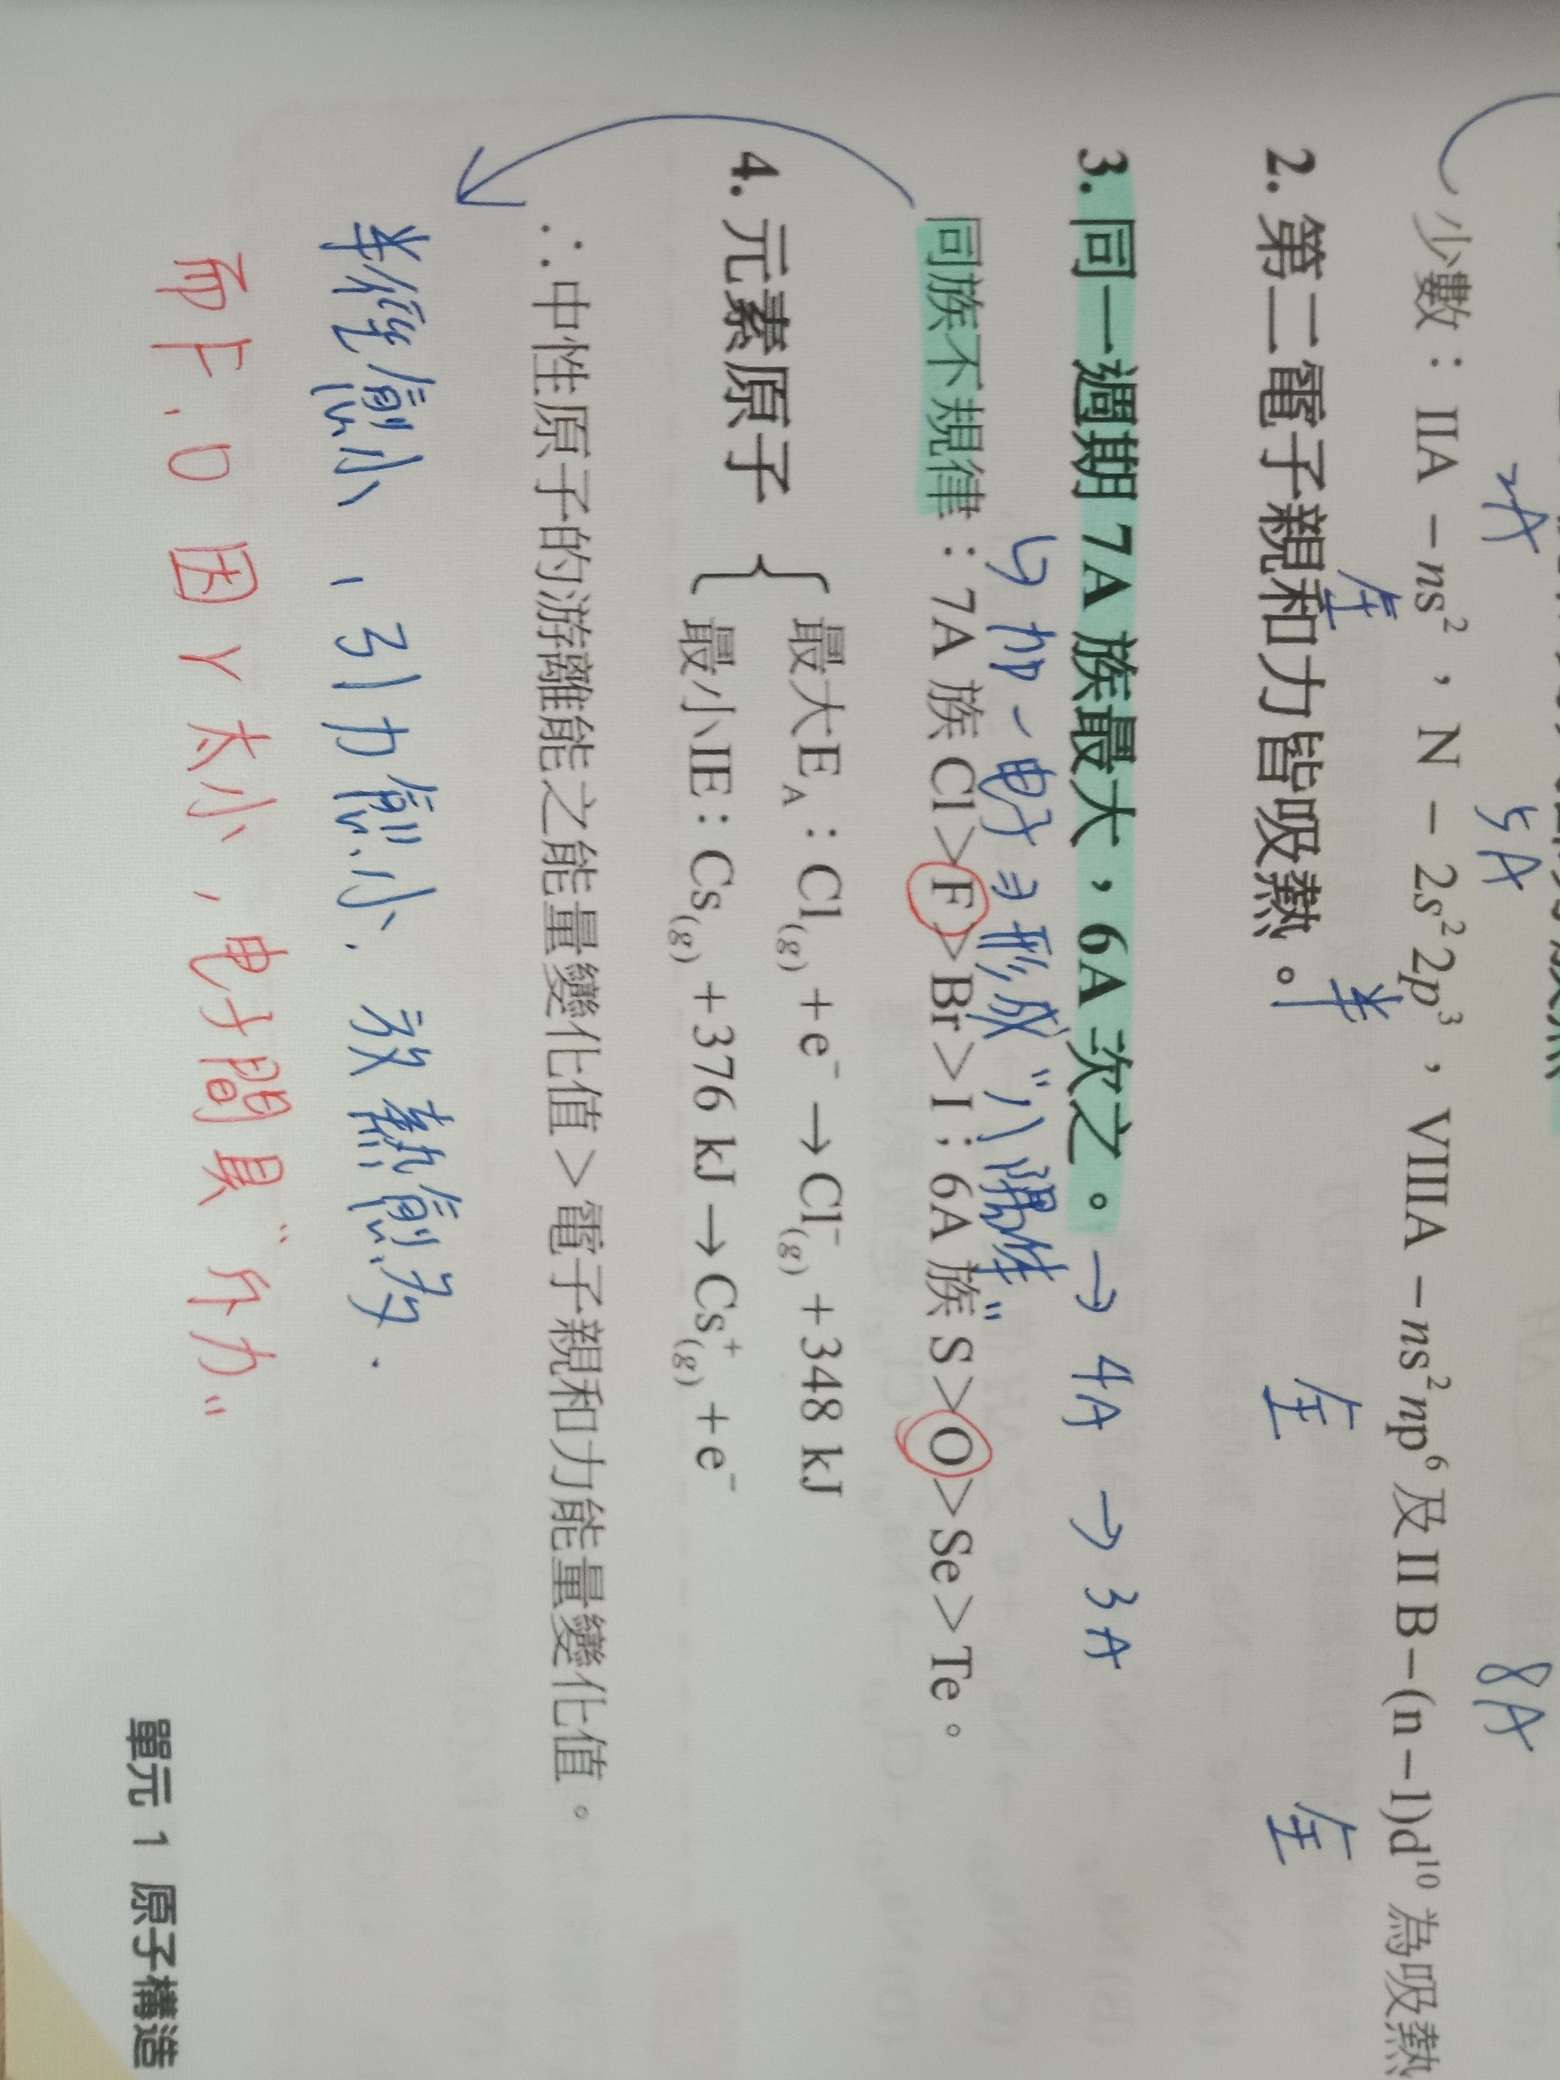 2A 5A 8A
少數：IIA－ns²，N－2s²2p³，VIIIA－ns²np⁶及II B－(n－1)d¹⁰為吸熱
全 半 全 全
2. 第二電子親和力皆吸熱。
3. 同一週期7A族最大，6A次之。→ 4A → 3A
↳ 加一电子形成"八隅体"
同族不規律：7A族Cl＞F＞Br＞I；6A族S＞O＞Se＞Te。
4. 元素原子
最大E_A：Cl(g)＋e⁻→Cl⁻(g)＋348 kJ
最小IE：Cs(g)＋376 kJ→Cs⁺(g)＋e⁻
∴中性原子的游離能之能量變化值＞電子親和力能量變化值。
半徑愈小，引力愈小，放熱愈多.
而F、O因r太小，电子間具"斥力"
單元 1 原子構造